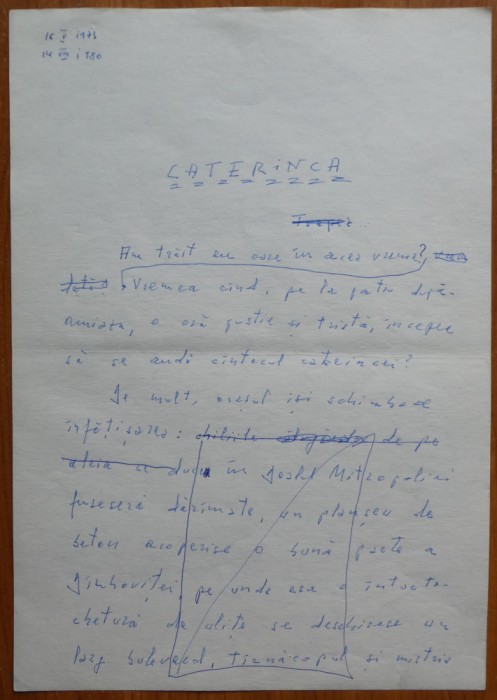 16 V 1973
14 VII 1980
CATERINCA
Am trăit eu oare în acea vreme?,
Vremea cînd, pe la patru după-
amiaza, o oră pustie și tristă, începea
să se audă cîntecul caterincei?
De mult, orașul își schimbase
înfățișarea: chiliile de pe
aleia ce ducea în Dealul Mitropoliei
fuseseră dărîmate, un planșeu de
beton acoperise o bună parte a
Dîmboviței, pe unde era o întorto-
chetură de ulițe se deschisese un
larg bulevard, tîrnăcopul și mistria